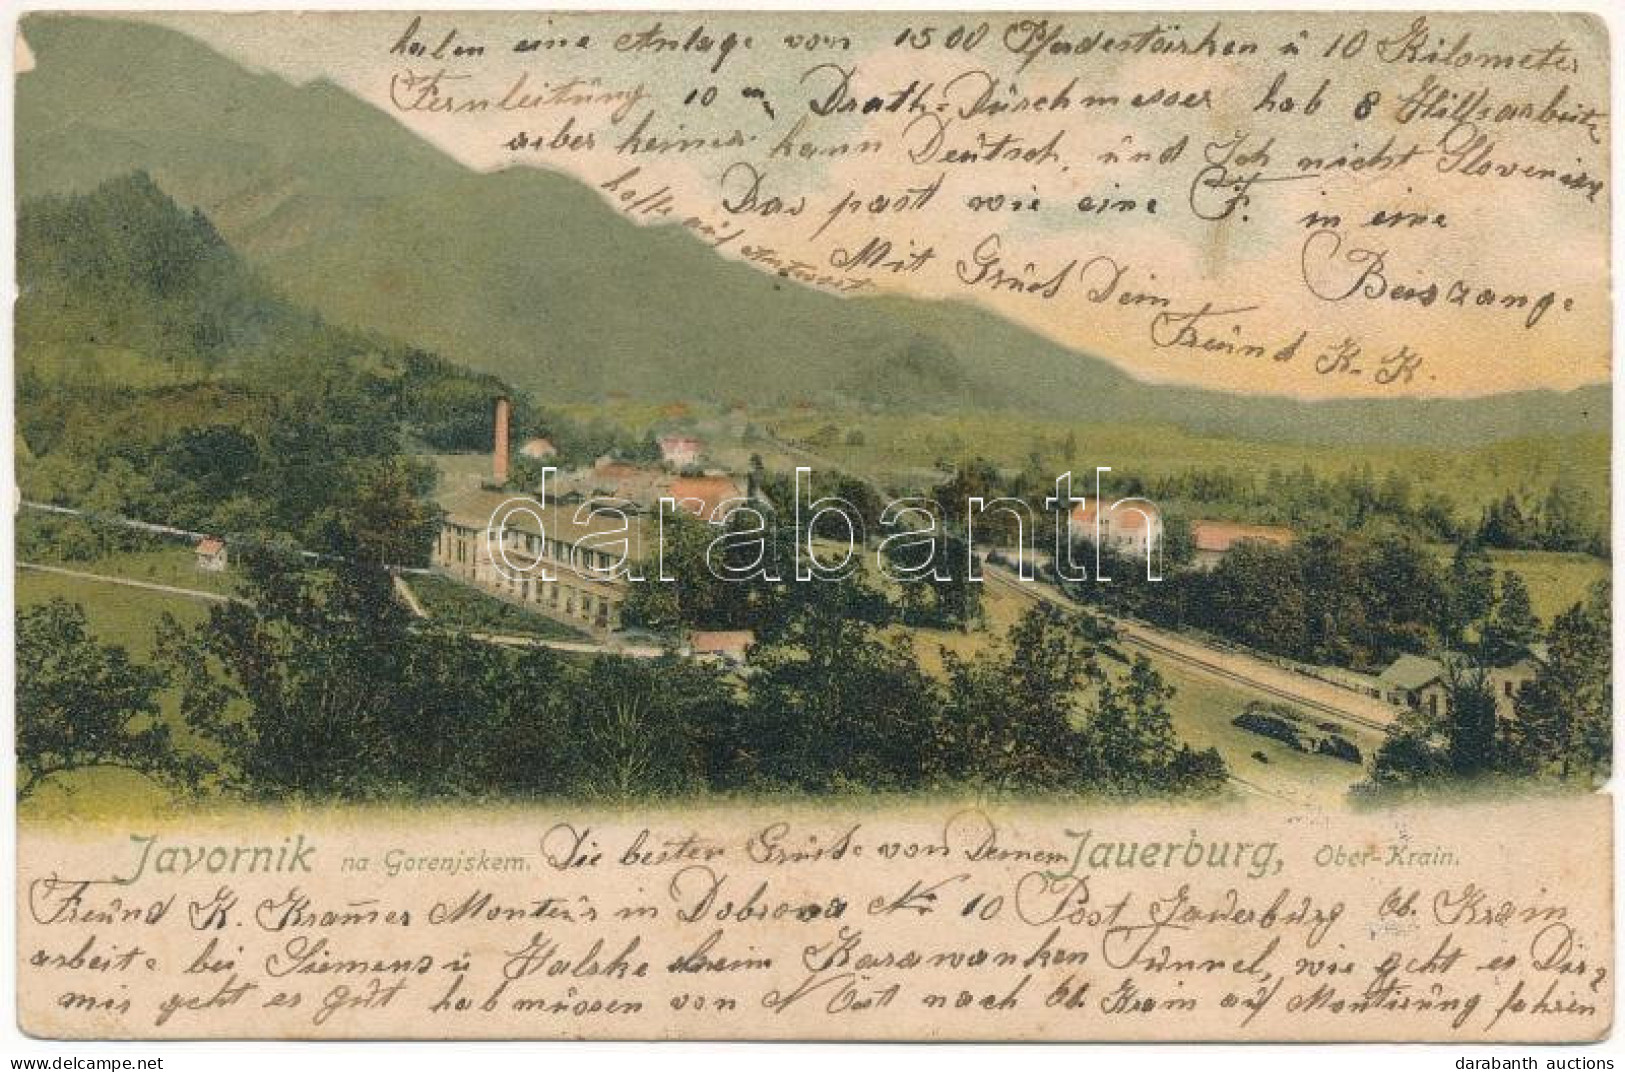 haben eine Anlage von 1500 Pferdestärken ü 10 Kilometer
Fernleitüng 10 m Drath-Dürchmesser hab 8 Hilfsarbeite
aber keiner kann Deütsch, ünd Ich nicht Slovenisch
Das past wie eine F. in eine
Beiszange
Mit Grüß Dein
Freünd K. K.
hoffe aüf Antwort
darabanth
Javornik na Gorenjskem. Die besten Grüße von Deinem Jauerburg, Ober-Krain.
Freünd K. Kram̄er Monteür in Dobrova Nr 10 Post Jauerbürg Ob. Krain
arbeite bei Siemens ü Halske beim Karawanken Tünnel, wie geht es Dir?
mir geht es güt hab müssen von N Öst nach Ob. Krain aüf Montirüng fahren
darabanth auctions